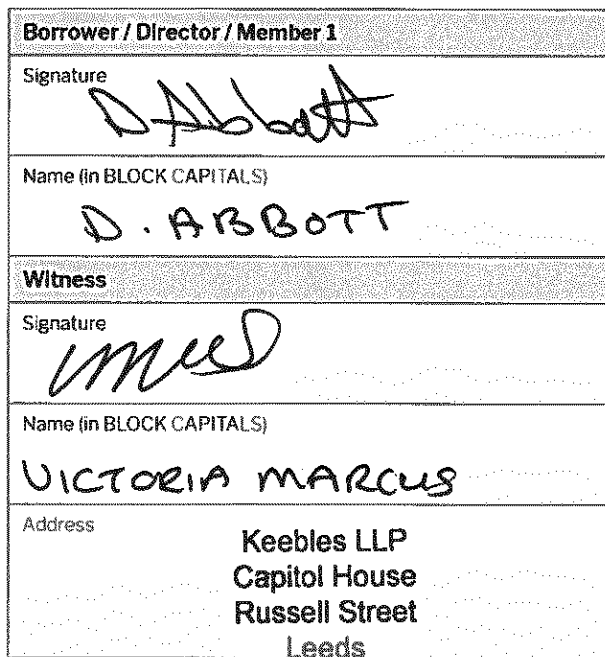 Borrower / Director / Member 1
Signature
D Abbott
Name (in BLOCK CAPITALS)
D. ABBOTT
Witness
Signature
Name (in BLOCK CAPITALS)
VICTORIA MARCUS
Address
Keebles LLP
Capitol House
Russell Street
Leeds